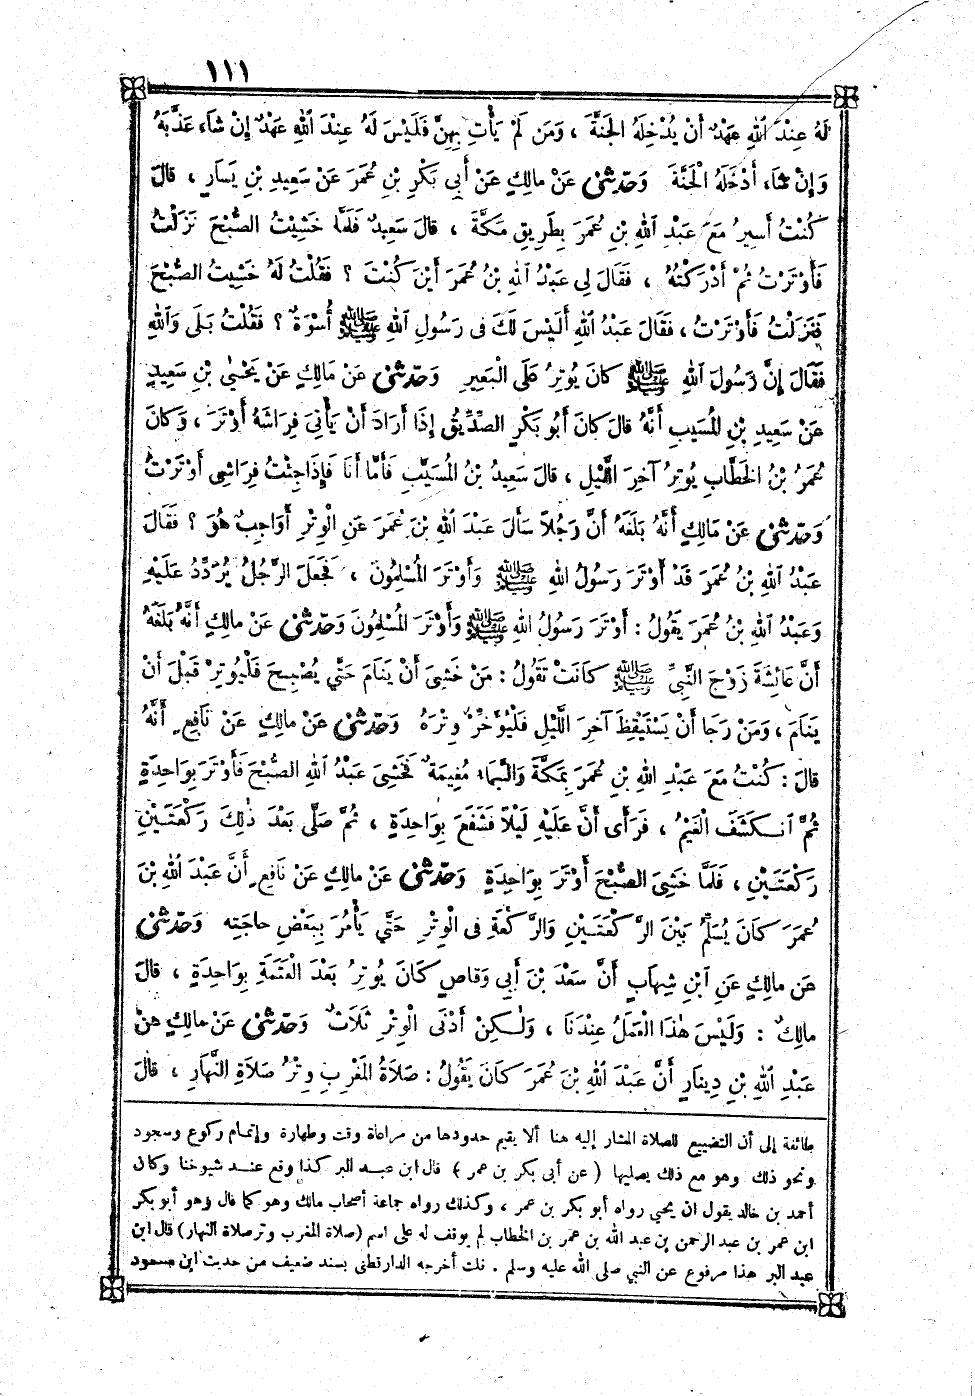 ١١١
لَهُ عِنْدَ اللهِ عَهْدٌ أَنْ يُدْخِلَهُ الْجَنَّةَ ، وَمَن لَمْ يَأْتِ بِهِنَّ فَلَيْسَ لَهُ عِنْدَ اللهِ عَهْدٌ إِنْ شَاءَ عَذَّبَهُ
وَإِنْ شَاءَ أَدْخَلَهُ الْجَنَّةَ وَحَدَّثَنِي عَنْ مالِكٍ عَنْ أَبِي بَكْرِ بْنِ عُمَرَ عَنْ سَعِيدِ بْنِ يَسَارٍ ، قالَ
كُنْتُ أَسِيرُ مَعَ عَبْدِ اللهِ بْنِ عُمَرَ بِطَرِيقِ مَكَّةَ ، قالَ سَعِيدٌ فَلَمَّا خَشِيْتُ الصُّبْحَ نَزَلْتُ
فَأَوْتَرْتُ ثُمْ أَدْرَكْتُهُ ، فَقَالَ لِي عَبْدُ اللهِ بْنُ عُمَرَ أَيْنَ كُنْتَ ؟ فَقُلْتُ لَهُ خَشِيتُ الصُّبْحَ
فَنَزَلْتُ فَأَوْتَرْتُ ، فَقَالَ عَبْدُ اللهِ أَلَيْسَ لَكَ فى رَسُولِ اللهِ ﷺ أُسْوَةٌ ؟ فَقُلْتُ بَلَى وَاللهِ
فَقَالَ إِنَّ رَسُولَ اللهِ ﷺ كانَ يُوتِرُ عَلَى الْبَعِيرِ وَحَدَّثَنِي عَنْ مَالِكٍ عَنْ يَحْيٰى بْنِ سَعِيدٍ
عَنْ سَعِيدِ بْنِ الْمُسَيَّبِ أَنَّهُ قالَ كانَ أَبُو بَكْرٍ الصِّدِّيقُ إِذَا أَرَادَ أَنْ يَأْتِىَ فِرَاشَهُ أَوْتَرَ ، وَكانَ
عُمَرُ بْنُ الخَطَّابِ يُوتِرُ آخِرَ اللَّيْلِ ، قالَ سَعِيدُ بْنُ الْمُسَيَّبِ فَأَمَّا أَنَا فَإِذَا جِئْتُ فِرَاشِى أَوْتَرْتُ
وَحَدَّثَنِي عَنْ مَالِكٍ أَنَّهُ بَلَغَهُ أَنَّ رَجُلاً سَأَلَ عَبْدَ اللهِ بْنَ عُمَرَ عَنِ الْوِتْرِ أَوَاجِبٌ هُوَ ؟ فَقَالَ
عَبْدُ اللهِ بْنُ عُمَرَ قَدْ أَوْتَرَ رَسُولُ اللهِ ﷺ وَأَوْتَرَ الْمُسْلِمُونَ ، فَجَعَلَ الرَّجُلُ يُرَدِّدُ عَلَيْهِ
وَعَبْدُ اللهِ بْنُ عُمَرَ يَقُولُ : أَوْتَرَ رَسُولُ اللهِ ﷺ وَأَوْتَرَ الْمُسْلِمُونَ وَحَدَّثَنِي عَنْ مالِكٍ أَنَّهُ بَلَغَهُ
أَنَّ عَائِشَةَ زَوْجَ النَّبِيِّ ﷺ كَانَتْ تَقُولُ : مَنْ خَشِىَ أَنْ يَنَامَ حَتَّى يُصْبِحَ فَلْيُوتِرْ قَبْلَ أَنْ
يَنَامَ ، وَمَنْ رَجَا أَنْ يَسْتَيْقِظَ آخِرَ اللَّيْلِ فَلْيُؤَخِّرْ وِتْرَهُ وَحَدَّثَنِي عَنْ مالِكٍ عَنْ نَافِعٍ أَنَّهُ
قالَ : كُنْتُ مَعَ عَبْدِ اللهِ بْنِ عُمَرَ بِمَكَّةَ وَالسَّمَاءُ مُغِيمَةٌ فَخَشِىَ عَبْدُ اللهِ الصُّبْحَ فَأَوْتَرَ بِوَاحِدَةٍ
ثُمَّ انْكَشَفَ الْغَيْمُ ، فَرَأَى أَنَّ عَلَيْهِ لَيْلاً فَشَفَعَ بِوَاحِدَةٍ ، ثُمَّ صَلَّى بَعْدَ ذٰلِكَ رَكْعَتَيْنِ
رَكْعَتَيْنِ ، فَلَمَّا خَشِىَ الصُّبْحَ أَوْتَرَ بِوَاحِدَةٍ وَحَدَّثَنِي عَنْ مالِكٍ عَنْ نَافِعٍ أَنَّ عَبْدَ اللهِ بْنَ
عُمَرَ كانَ يُسَلِّمُ بَيْنَ الرَّكْعَتَيْنِ وَالرَّكْعَةِ فى الْوِتْرِ حَتَّى يَأْمُرَ بِبَعْضِ حاجَتِهِ وَحَدَّثَنِي
عَن مالِكٍ عَنِ ابْنِ شِهَابٍ أَنَّ سَعْدَ بْنَ أَبِي وَقاصٍ كَانَ يُوتِرُ بَعْدَ الْعَتَمَةِ بِوَاحِدَةٍ ، قالَ
مالِكٌ : وَلَيْسَ هٰذَا الْعَمَلُ عِنْدَنَا ، وَلٰكِنْ أَدْنَى الْوِتْرِ ثَلَاثٌ وَحَدَّثَنِي عَنْ مالِكٍ عَنْ
عَبْدِ اللهِ بْنِ دِينَارٍ أَنَّ عَبْدَ اللهِ بْنَ عُمَرَ كَانَ يَقُولُ : صَلَاةُ الْمَغْرِبِ وِتْرُ صَلَاةِ النَّهَارِ ، قالَ
طائفة إلى أن التضييع للصلاة المشار إليه هنا ألا يقيم حدودها من مراعاة وقت وطهارة وإتمام ركوع وسجود
ونحو ذلك وهو مع ذلك يصليها ( عن أبى بكر بن عمر ) قال ابن عبد البر كذا وقع عند شيوخنا وكان
أحمد بن خالد يقول ان يحيى رواه أبو بكر بن عمر ، وكذلك رواه جماعة أصحاب مالك وهو كما قال وهو أبو بكر
ابن عمر بن عبد الرحمن بن عبد الله بن عمر بن الخطاب لم يوقف له على اسم (صلاة المغرب وتر صلاة النهار) قال ابن
عبد البر هذا مرفوع عن النبي صلى الله عليه وسلم . قلت أخرجه الدارقطنى بسند ضعيف من حديث ابن مسعود